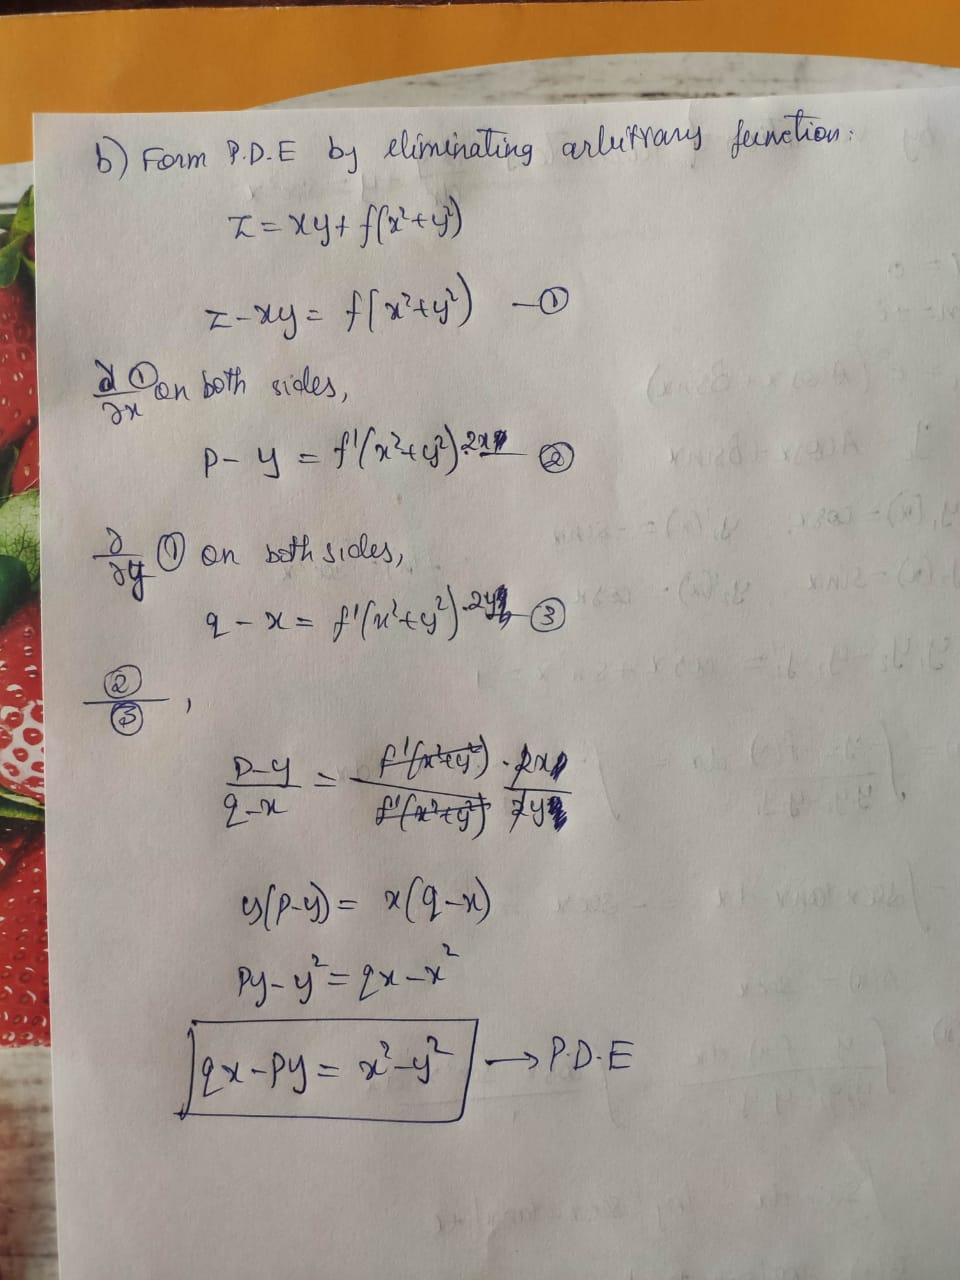 b) Form P.D.E by eliminating arbitrary function:
z = xy + f(x²+y²)
z - xy = f(x²+y²) —①
∂/∂x ① on both sides,
p - y = f'(x²+y²).2x — ②
∂/∂y ① on both sides,
q - x = f'(x²+y²).2y — ③
②/③ ,
p-y/q-x = f'(x²+y²) . 2x/f'(x²+y²) 2y
y(p-y) = x(q-x)
py - y² = qx - x²
qx - py = x² - y² → P.D.E